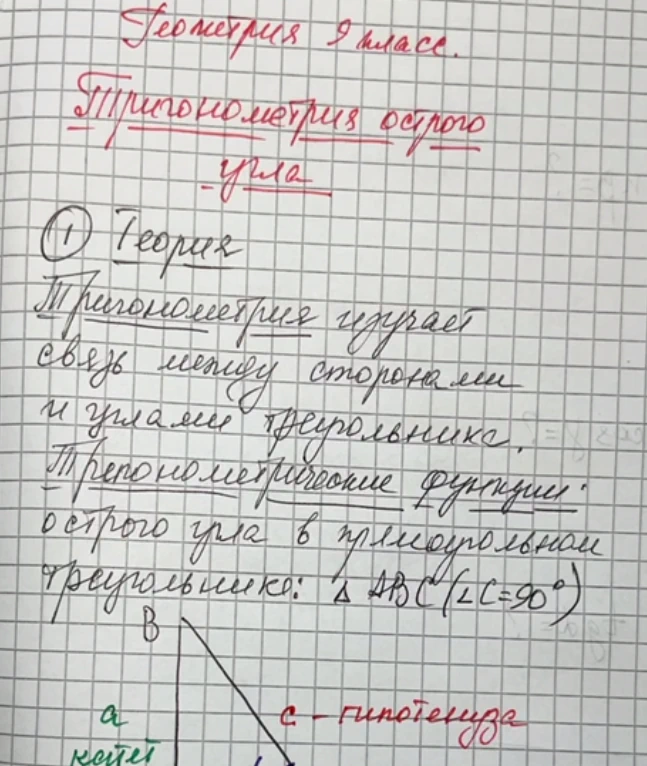 Геометрия 9 класс.
Тригонометрия острого
угла
① Теория
Тригонометрия изучает
связь между сторонами
и углами треугольника.
Тригонометрические функции
острого угла в прямоугольном
треугольнике: Δ ABC (∠C=90°)
B
a
c - гипотенуза
катет